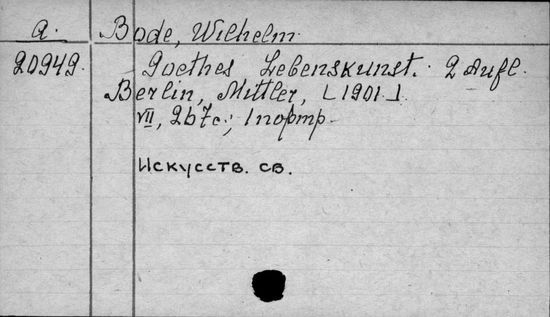 a. Bode, Wilhelm.
20949. Goethes Lebenskunst. 2 Aufl.
Berlin, Mittler, [1901]
VII, 267 с.; 1 портр.
Искусств. св.